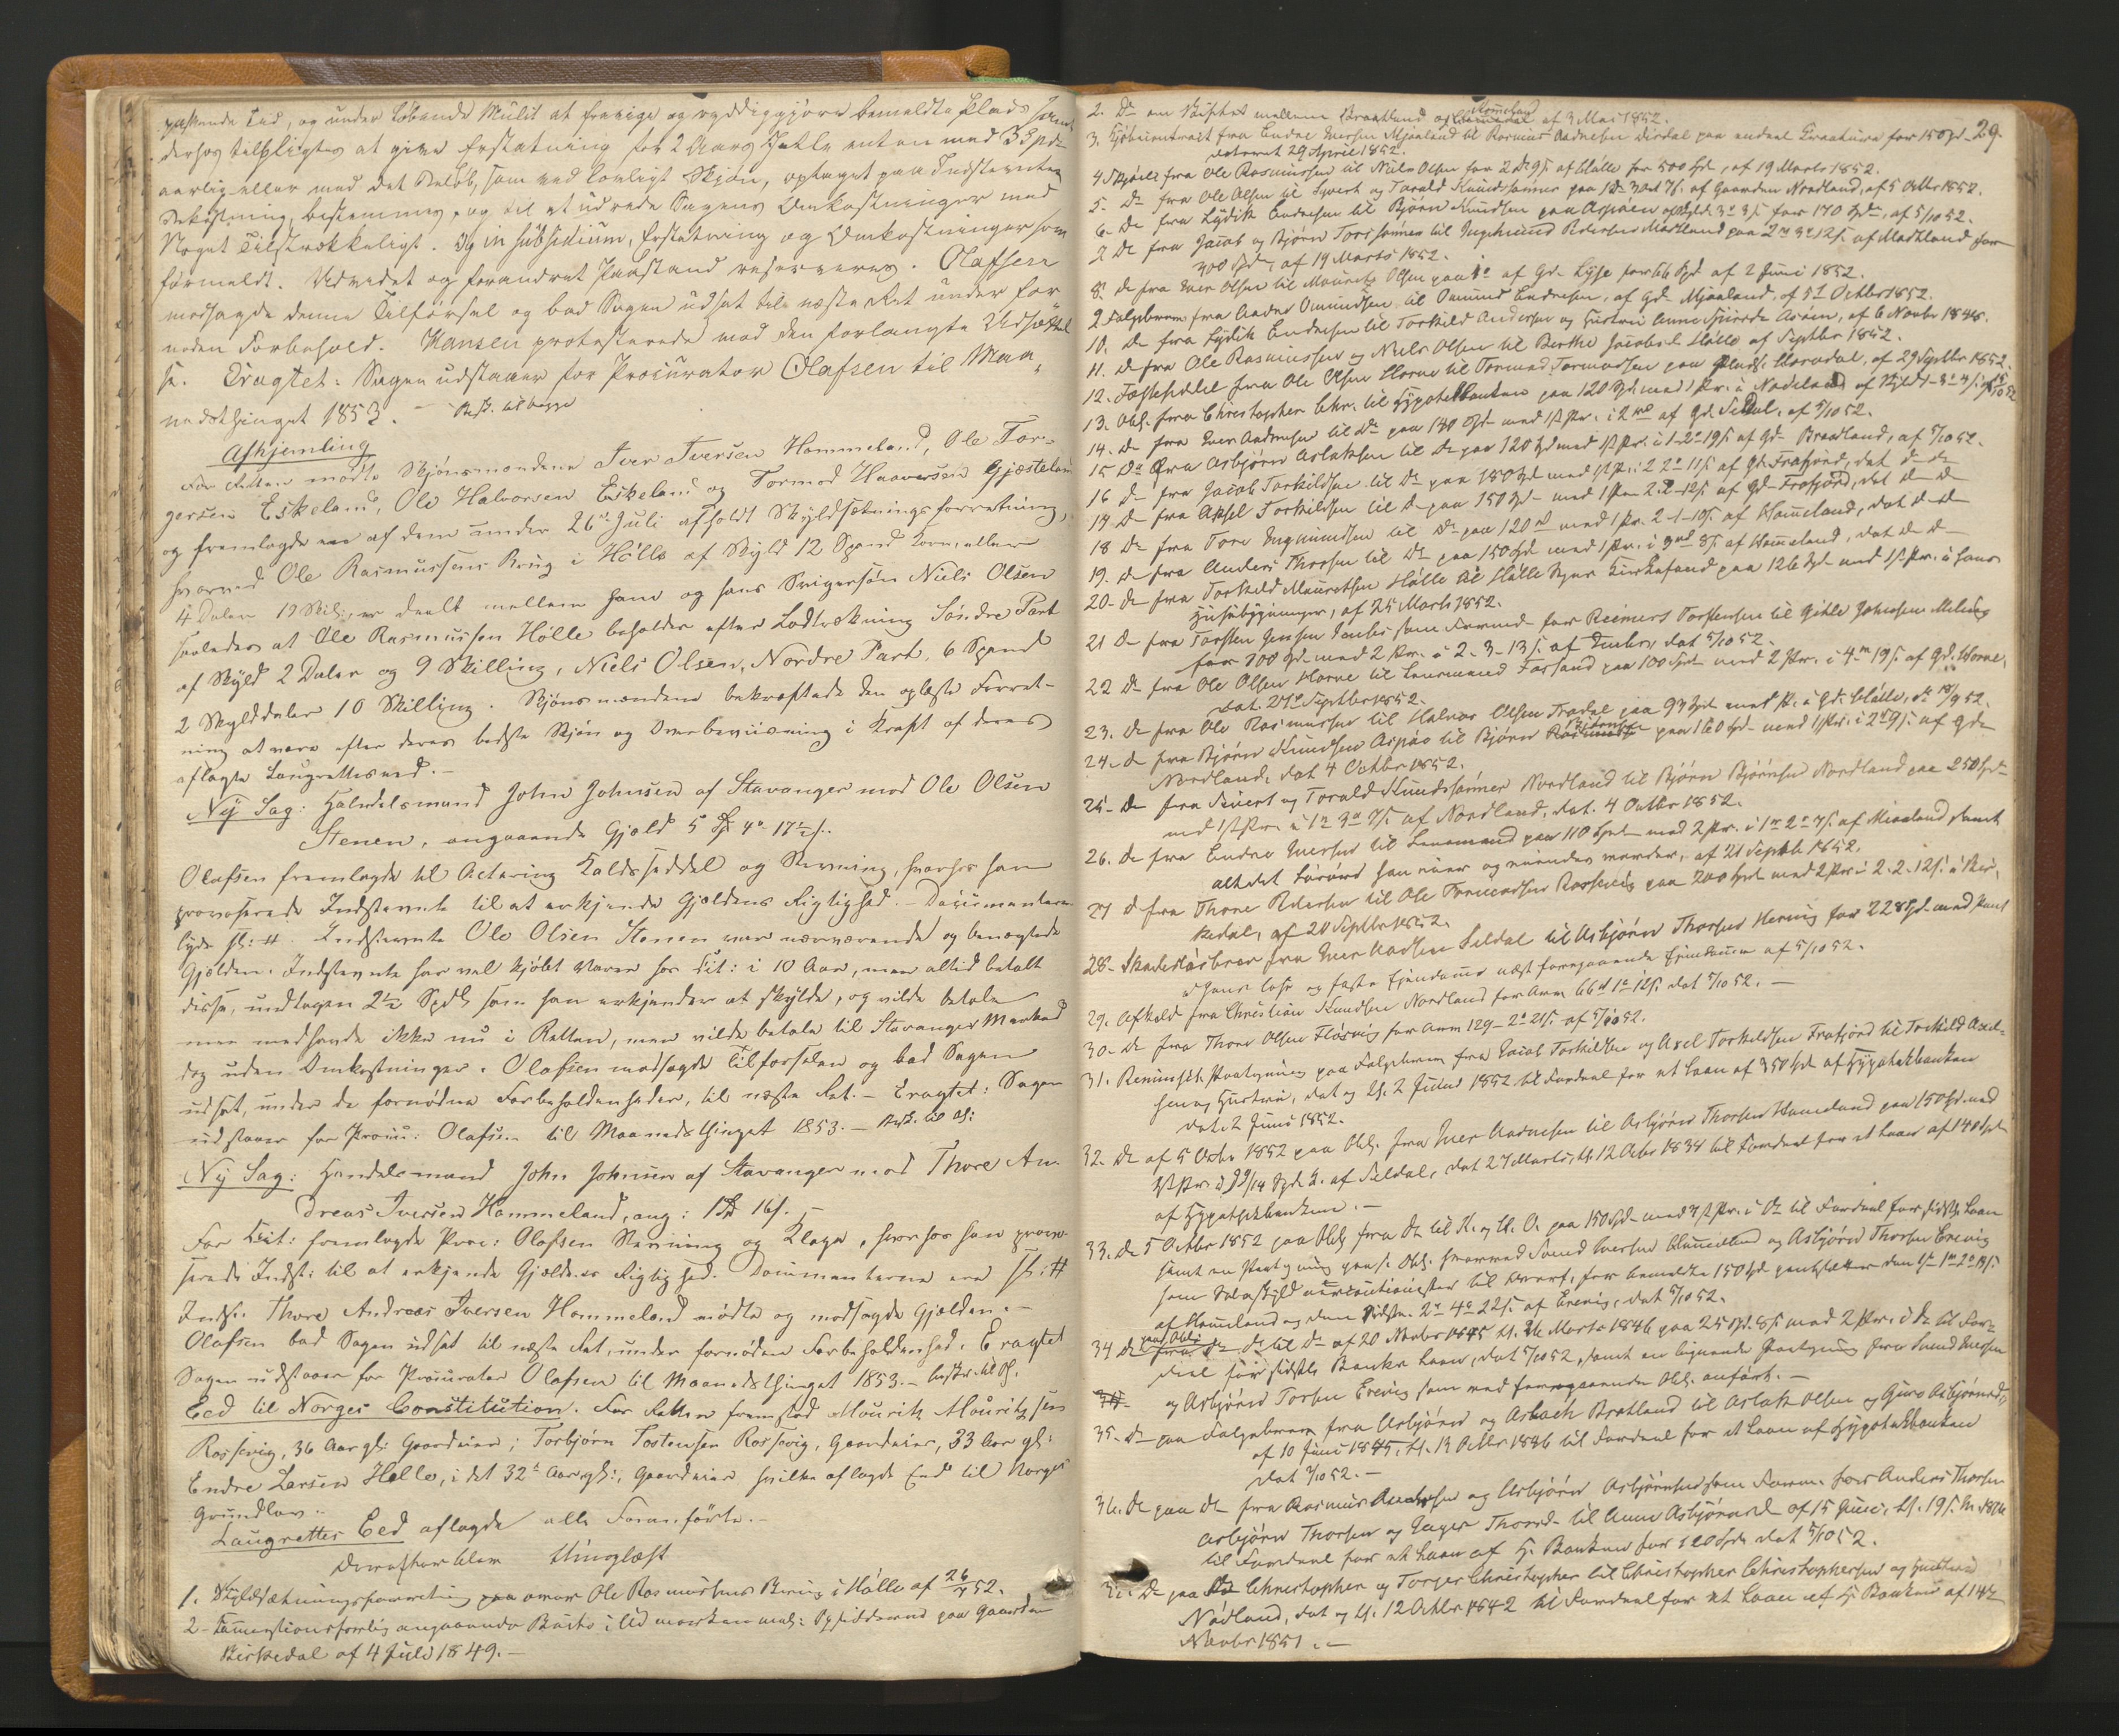 passende Tid, og under Løbende Mulct at fravige og ryddiggjøre bemeldte Plads, sam-
derhos tilpligtes at give Erstatning for 2 Aars Hølle enten med 3 Spd
aarlig eller med det Beløb, som ved lovligt Skjøn, optaget paa Indstevntes
Bekostning, bestemmes, og til at udrede Sagens Omkostninger med
Noget Tilstrækkeligt. Og in subsidium, Erstatning og Omkostninger som
formeldt. Udvidet og forandret Paastand reserveres. Olafsen
modsagde denne Tilførsel og bad Sagen udsat til næste Ret under for
nøden Forbehold. Hansen protesterede mod den forlangte Udsættel
se. Eragtet: Sagen udstaaer for Procurator Olafsen til Maa-
nedsthinget 1853. — Besk. til begge
Afhjemling
For Retten mødte Skjønsmændene Iver Iversen Hommeland, Ole Tor-
gersen Eskeland, Ole Halvorsen Eskeland og Tormod Haaversen Gjesteland
og fremlagde en af dem under 26de Juli afholdt Skyldsætningsforretning,
hvorved Ole Rasmussens Brug i Hølle af Skyld 12 Spand Korn, eller
4 Daler 19 Skil:, er deelt mellem ham og hans Svigersøn Niels Olsen
saaledes at Ole Rasmussen Hølle beholder efter Lodtrækning Søndre Part
af Skyld 2 Daler og 9 Skilling, Niels Olsen, Nordre Part, 6 Spand
2 Skylddaler 10 Skilling. Skjønsmændene bekræftede den oplæste Forret-
ning at være efter deres bedste Skjøn og Overbeviisning i Kraft af deres
aflagte Laugrettesed.—
Ny Sag: Handelsmand John Johnsen af Stavanger mod Ole Olsen
Stenen, angaaende Gjæld 5 Spd 4 17½ s.
Olafsen fremlagde til Actering Kaldsseddel og Stevning, hvorhos han
provocerede Indstevnte til at erkjende Gjældens Rigtighed. – Documenterne
lyde sl: # Indstevnte Ole Olsen Stenen var nærværende og benægtede
Gjælden. Indstevnte har vel kjøbt Varer hos Cit: i 10 Aar, men altid betalt
disse, undtagen 2½ Spdl som han erkjender at skylde, og vilde betale
men medhavde ikke nu i Retten, men vilde betale til Stavanger Marked
dog uden Omkostninger. Olafsen modsagde Tilførselen og bad Sagen
udsat, under de fornødne Forbeholdenheder, til næste Ret. – Eragtet: Sagen
udstaaer for Procu: Olafsen til Maanedsthinget 1853. – Besk. til Ol:
Ny Sag: Handelsmand John Johnsen af Stavanger mod Thore An-
dreas Iversen Hommeland, ang: 1 Spd 16 s. –
For Cit: fremlagde Proc: Olafsen Stevning og Klage, hvorhos han provo-
cerede Indst: til at erkjende Gjældens Rigtighed. Documenterne ere sl: #
Indst. Thore Andreas Iversen Hommeland mødte og modsagde Gjælden.—
Olafsen bad Sagen udsat til næste Ret, under fornøden Forbeholdenhed. Eragtet
Sagen udstaaer for Procurator Olafsen til Maanedsthinget 1853. – Besk. til Ol.
Eed til Norges Constitution. For Retten fremstod Mouritz Mouritzsen
Rossevig, 36 Aar gl: Gaardeier; Torbjørn Tostensen Rossevig, Gaardeier, 33 Aar gl:
Endre Larsen Helle, i det 32te Aar gl:, Gaardeier hvilke aflagde Eed til Norges
Grundlov.
Laugrettes Eed aflagde alle Foranførte.—
Derefter blev thinglæst
1. Skyldsætningsforretning over Ole Rasmussens Brug i Hølle af 26/7 52.
2– angaaende i Udmarken mel: Opsidderne paa Gaarden
Birkedal af 4 Juli 1849.—
29.
2. Do om Skiftet mellem Braatland og Homeland af 3 Mai 1852.
3. fra Endre Iversen Mjaaland til Rasmus Aadnesen Dirdal paa endeel Creature for 150 Spd
dateret 29 April 1852.
4 Skjøde fra Ole Rasmussen til Niels Olsen for 2 D 9 s. af Hølle for 500 Spd, af 19 Marts 1852.
5. Do fra Ole Olsen til Sivert og Torald Knudssønner paa 1 Dr 3 Ort 7 s. af Gaarden Nordland, af 5 Octbr 1852.
6. Do fra Lydik Endresen til Bjørn Knudsen paa Aspøen af Skyld 3 3 s. for 170 Spd, af 5/10 52.
7 Do fra Jacob og Bjørn Torssønner til Ingemund Pedersen Madtland paa 2 12 s. af Madtland for
300 Spd, af 19 Marts 1852.
8. Do fra Iver Olsen til Mauritz Olsen paa 1 af Gd. Lyse for 66 Spd af 2 Juni 1852.
9 Salgebrev fra Aadne Omundsen til Omund Endresen, af Gd. Mjaaland, af 5te Octbr 1852.
10. Do fra Lydik Endresen til Torkild Andersen og Hustru Anne af 6 Novbr 1848.
11. Do fra Ole Rasmussen og Niels Olsen til Berthe Jacobsd. Hølle af Septbr 1852.
12. Fæsteseddel fra Ole Olsen Horne til Tormod Tormodsen paa Plads. af 29 Septbr 1852.
13. Obl. fra Christopher Chr. til Hypothekbanken paa 120 Spd. med 1 Pr. i Nødeland af Skyld
14. Do fra Iver Aadnesen til Do paa 140 Spd med 1st Pr. i 2 af Gd. Seldal, af 5/10 52.
15 Do fra Asbjørn Aslaksen til Do paa 120 Spd med 1st Pr. i 1–2–19 s. af Gd. Bratland, af 5/10 52.
16 Do fra Jacob Torkildsen til Do paa 180 Spd med 1st Pr. i 2 2 11 s. af Gd. Frafjord, dat Do Do
17 Do fra Aksel Torkildsen til Do paa 150 Spd med 1 Pr. 2–2–12 s. af Gd. Frafjord, dat Do Do
18 Do fra Tore Ingemundsen til Do paa 120 med 1 Pr. 2–1–10 s. af Homeland, dat Do Do
19. Do fra Anders Thorsen til Do paa 150 Spd. med 1 Pr. i 3 8 s. af Homeland, dat Do Do
20– Do fra Torkild Mauretsen Hølle til Hølle Sogns paa 126 Spd med 1st Pr. i hans
Huusbygninger, af 25 Marts 1852.
21 Do fra Torsten Jensen som Formd. for Reimert Torstensen til Gitle Johnsen Meling
for 700 Spd med 2 Pr. i 2–3–13 s. af dat 5/10 52.
22 Do fra Ole Olsen Horne til Lensmand Forsand paa 100 Spd med 2 Pr. i 4 19 s. af Gd. Horne,
dat. 27de Septbr 1852.
23. Do fra Ole Rasmussen til Halvor Olsen Fredal paa 97 Spd med Pr. i Gd. Hølle, d. 18/9 52.
24. Do fra Bjørn Knudsen Aspøe til Bjørn Bjørnsen paa 160 Spd med 1 Pr. i 2 9 s. af Gd.
Nordland, dat 4 Octbr 1852.
25– Do fra Sivert og Torald Knudssønner Nordland til Bjørn Bjørnsen Nordland paa 250 Spd
med 1st Pr. i 1 3 7 s. af Nordland, dat. 4 Octbr 1852.
26. Do fra Endre Iversen til Lensmand paa 110 Spd med 2 Pr. i 1 2 7 s. af Miaaland, samt
alt det Løsøre han eier og eiendes vorder, af 21 Septbr 1852.
27 Do fra Thore Pedersen til Ole Tormodsen Rossevig paa 200 Spd. med 2 Pr. i 2. 2. 12 s. i Bir-
kedal, af 20 Septbr 1852.
28– Skadesløsbrev fra Iver Aadnesen Seldal til Asbjørn Thorsen Herevig for 228 Spd. med Pant
i hans løse og faste Eiendomme næst foregaaende Hæftelser af 5/10 52.
29. Afkald fra Christian Knudsen Nordland for Arv 66 1 12 s. dat 5/10 52. —
30– Do fra Thore Olsen Flørvig for Arv 129– 2 21 s. af 5/10 52.
31. paa Salgebrev fra Jacob Torkildsen og Axel Torkildsen Frafjord til Torkild Axel-
sen og Hustru, dat og tl. 2 Juni 1852 til Fordeel for et Laan af 350 Spd. af Hypothekbanken
dat 2 Juni 1852.
32. Do af 5 Octbr 1852 paa Obl. fra Iver Aadnesen til Asbjørn Thorsen Homeland paa 150 Spd. med
1st Pr. i af Seldal, dat 27 Marts, tl. 12 Octbr 1834 til Fordeel for et Laan af 140 Spd
af Hypothekbanken.—
33. Do 5 Octbr 1852 paa Obl. fra Do til Do paa 150 Spd. med Pr. i Do til Fordeel for sidste Laan
samt en Paategning paa s. Obl. hvorved Svend Iversen Homeland og Asbjørn Thorsen Erevig
som Selvskyld nercautionister til for bemeldte 150 Spd pantsætter den 1ste 1 2 19 s.
af Homeland og den Sidste 2 4 22 s. af Erevig, dat 5/10 52.
34 Do paa Obl. Do til Do af 20 Novbr 1845 tl. 26 Marts 1846 paa 25 Spd. 8 s. med 2 Pr. i Do til For-
deel for sidste Banke Laan, dat 5/10 52, samt en lignende Paategning fra Svend Iversen
og Asbjørn Torsen Erevig som ved foregaaende Obl. anført.—
35– Do paa Salgebrev fra Asbjørn og Aslach Bratland til Aslak Olsen og Guro Asbjørnsd.,
af 10 Juni 1845, tl. 13 Octbr 1846 til Fordeel for et Laan af Hypothekbanken
dat 5/10 52.—
36. Do paa Do fra Rasmus og Asbjørn Asbjørnsen som Form. for Anders Thorsen
Asbjørn Thorsen og Inger Thorsd. til Anne Asbjørnsd. af 15 Juni, tl.
til Fordeel for et Laan af H. Banken for 120 Spd. dat 5/10 52.
Do paa Do Christopher og Torger Christopher til Christopher Christophersen og Hustru
Nødland, dat og tl. 12 Octbr 1842 til Fordeel for et Laan af H. Banken af 14de
Novbr 1851.—